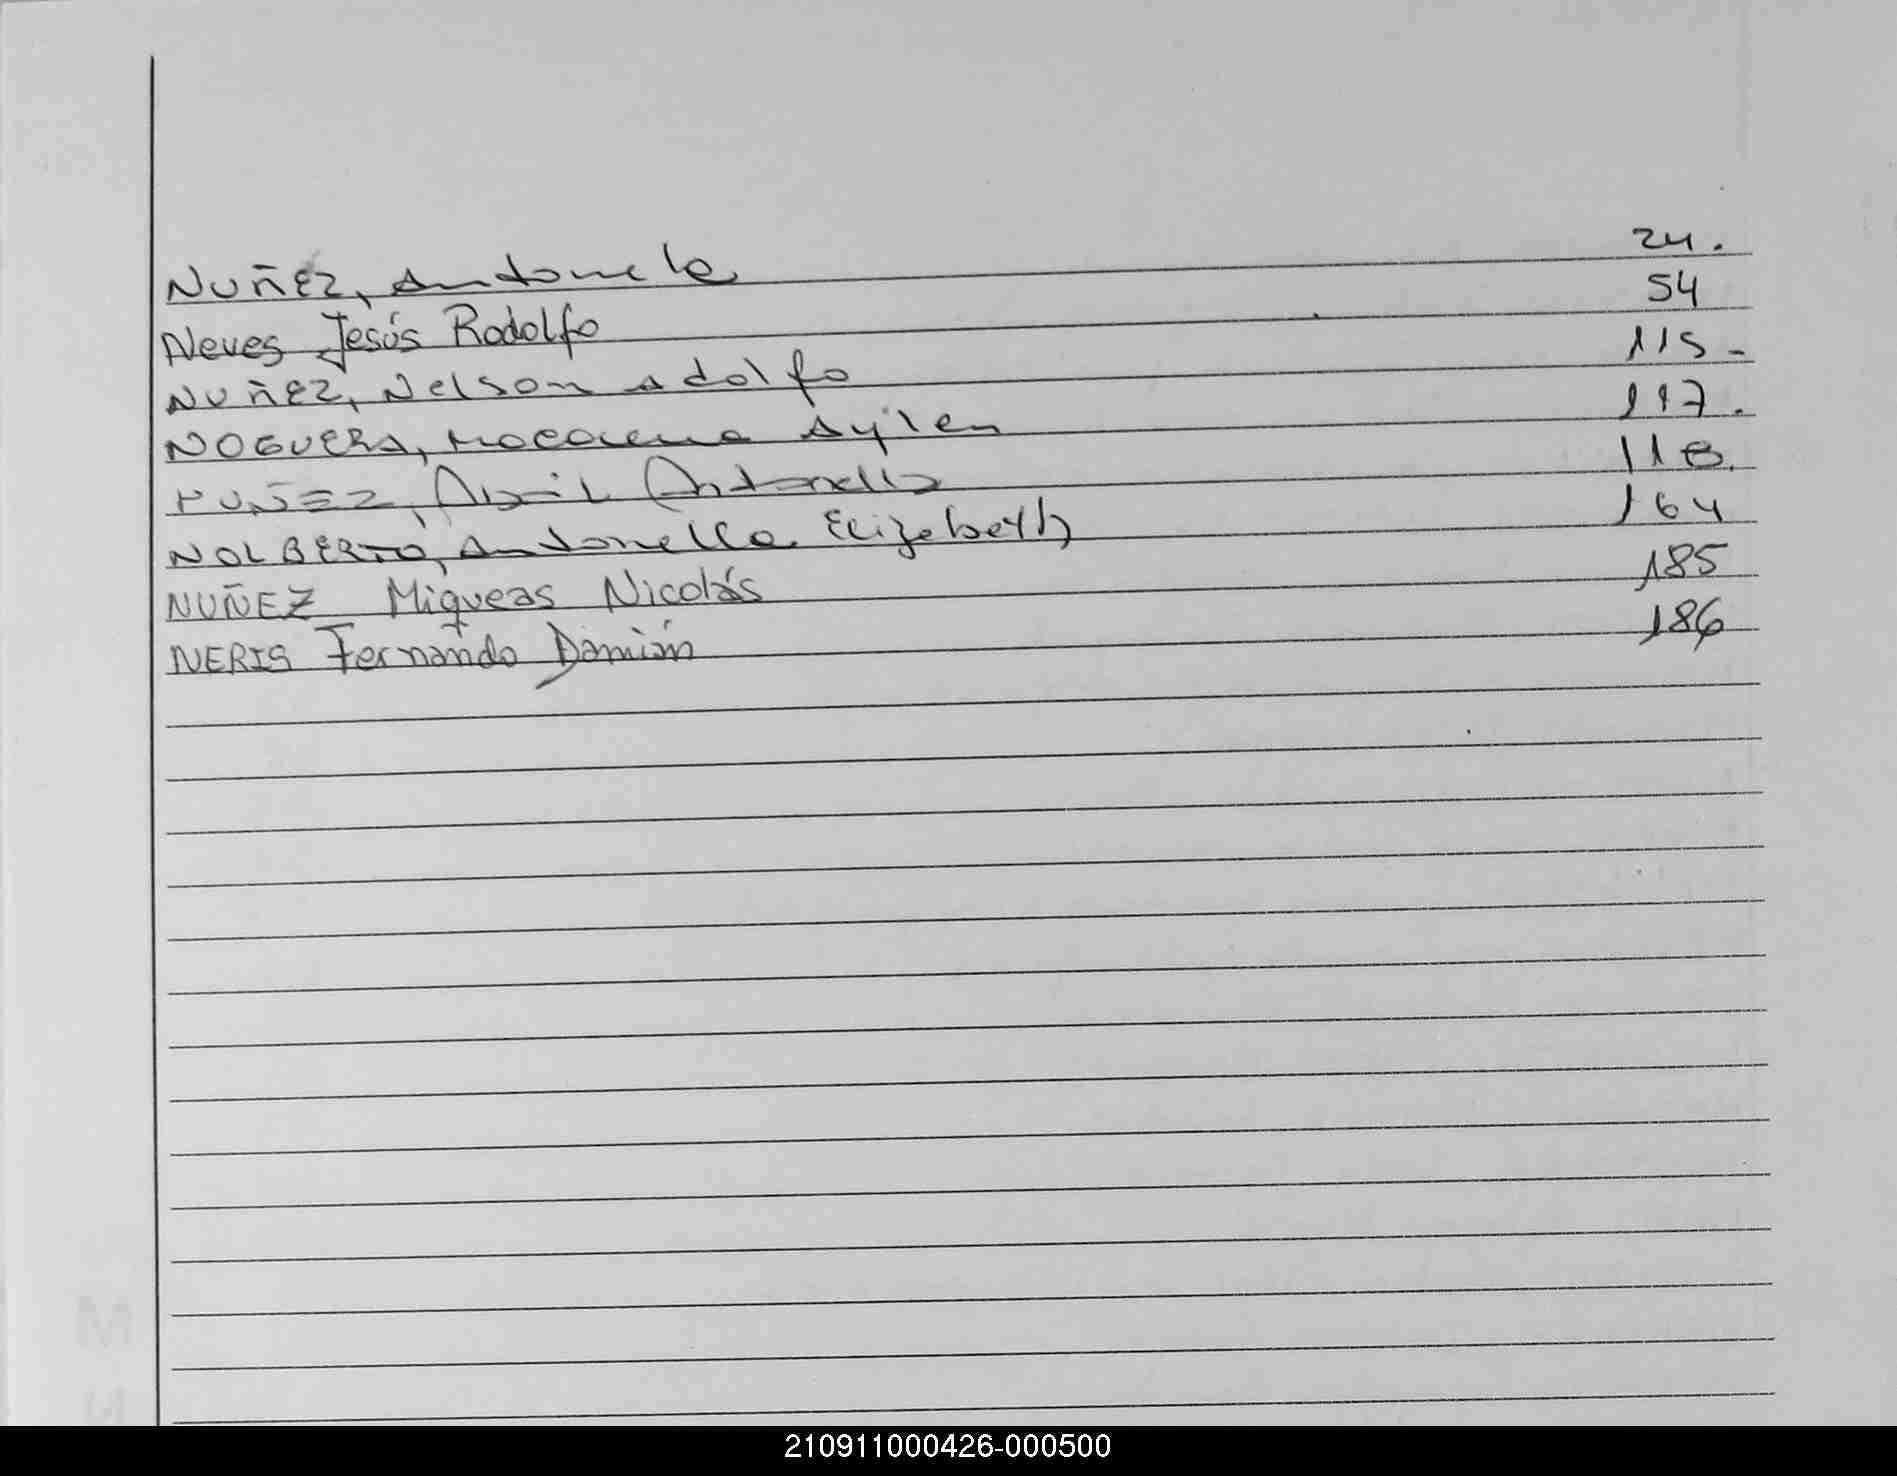 NUÑEZ, Antonela 24.
Neves Jesús Rodolfo 54
NUÑEZ, Nelson Adolfo 115-
NOGUERA, Macarena Aylen 117.
NUÑEZ, Abril Antonella 118.
NOLBERTO, Antonella Elizabeth 164
NUÑEZ Miqueas Nicolás 185
NERIS Fernando Damián 186
210911000426-000500